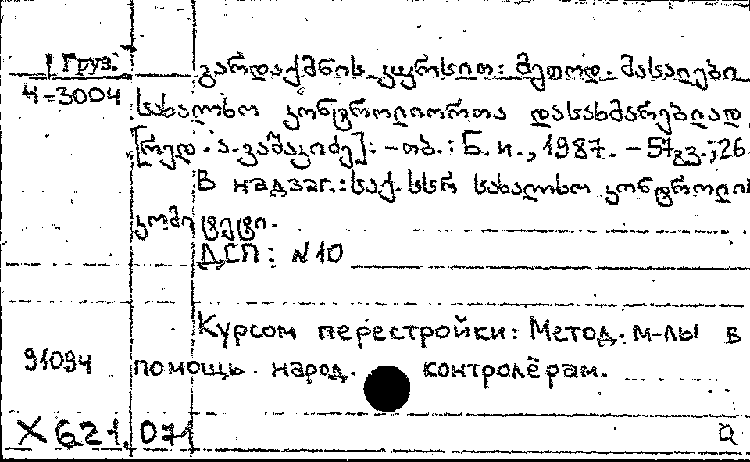 Груз. გარდაქმნის კურსით: მეთოდ. მასალები
4-3004 სახალხო კონტროლიორთა დასახმარებლად
[რედ. ა. ვაშაკიძე]. - თბ.: Б. и., 1987. - 57 გვ.; 26
В надзаг.: საქ. სსრ სახალხო კონტროლის
კომიტეტი.
ДСП: N 10
Курсом перестройки: Метод. м-лы в
91094 помощь народ. контролёрам.
X 621.071 а